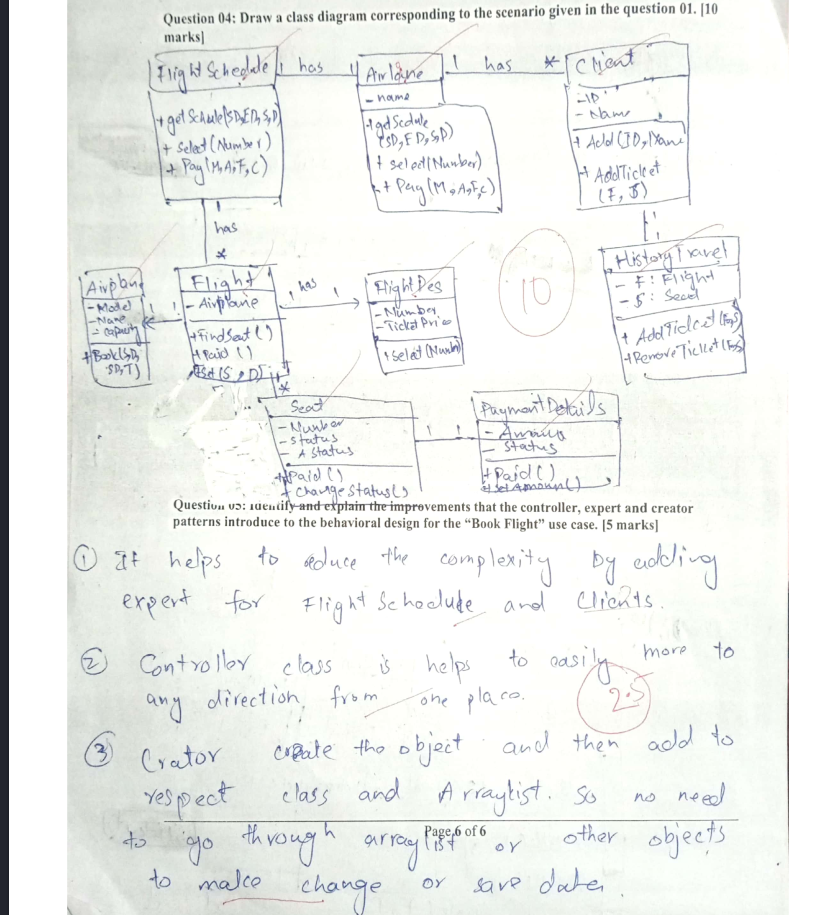 Question 04: Draw a class diagram corresponding to the scenario given in the question 01. [10
marks]
Flight Schedule 1 has 1 Airline 1 has * Client
- name
-ID
- Name
+ getSchule(SD,ED,S,D)
+ Select (Number)
+ Pay (M,A,F,C)
+ getSedule
(SD,FD,S,D)
+ select(Number)
+ Pay (M,A,F,C)
+ Add (ID, Name
+ AddTicket
(F, S)
1
has
*
1
1
10
Airplane
- Model
- Name
- capacity
+Book(SD,
SD,T)
1 1
Flight
- Airplane
+FindSeat ()
+Paid ()
1 has 1
FlightDes
- Number
- Ticket Price
+select (Numb)
HistoryTravel
- F: Flight
- S: Seat
+ AddTicket (F,S)
+RemoveTicket (F,S)
1
*
Seat
- Number
- Status
- A Status
+Paid ()
+ changeStatus()
1 1
Payment Details
- Amount
- Status
+Paid ()
+set Amount()
Question 05: Identify and explain the improvements that the controller, expert and creator
patterns introduce to the behavioral design for the “Book Flight” use case. [5 marks]
① It helps to reduce the complexity by adding
expert for Flight Schedule and Clients.
② Controller class is helps to easily more to
any direction, from one place.
2.5
③ Crator create the object and then add to
respect class and Arraylist. So no need
Page 6 of 6
to go through arraylist or other objects
to make change or save data.